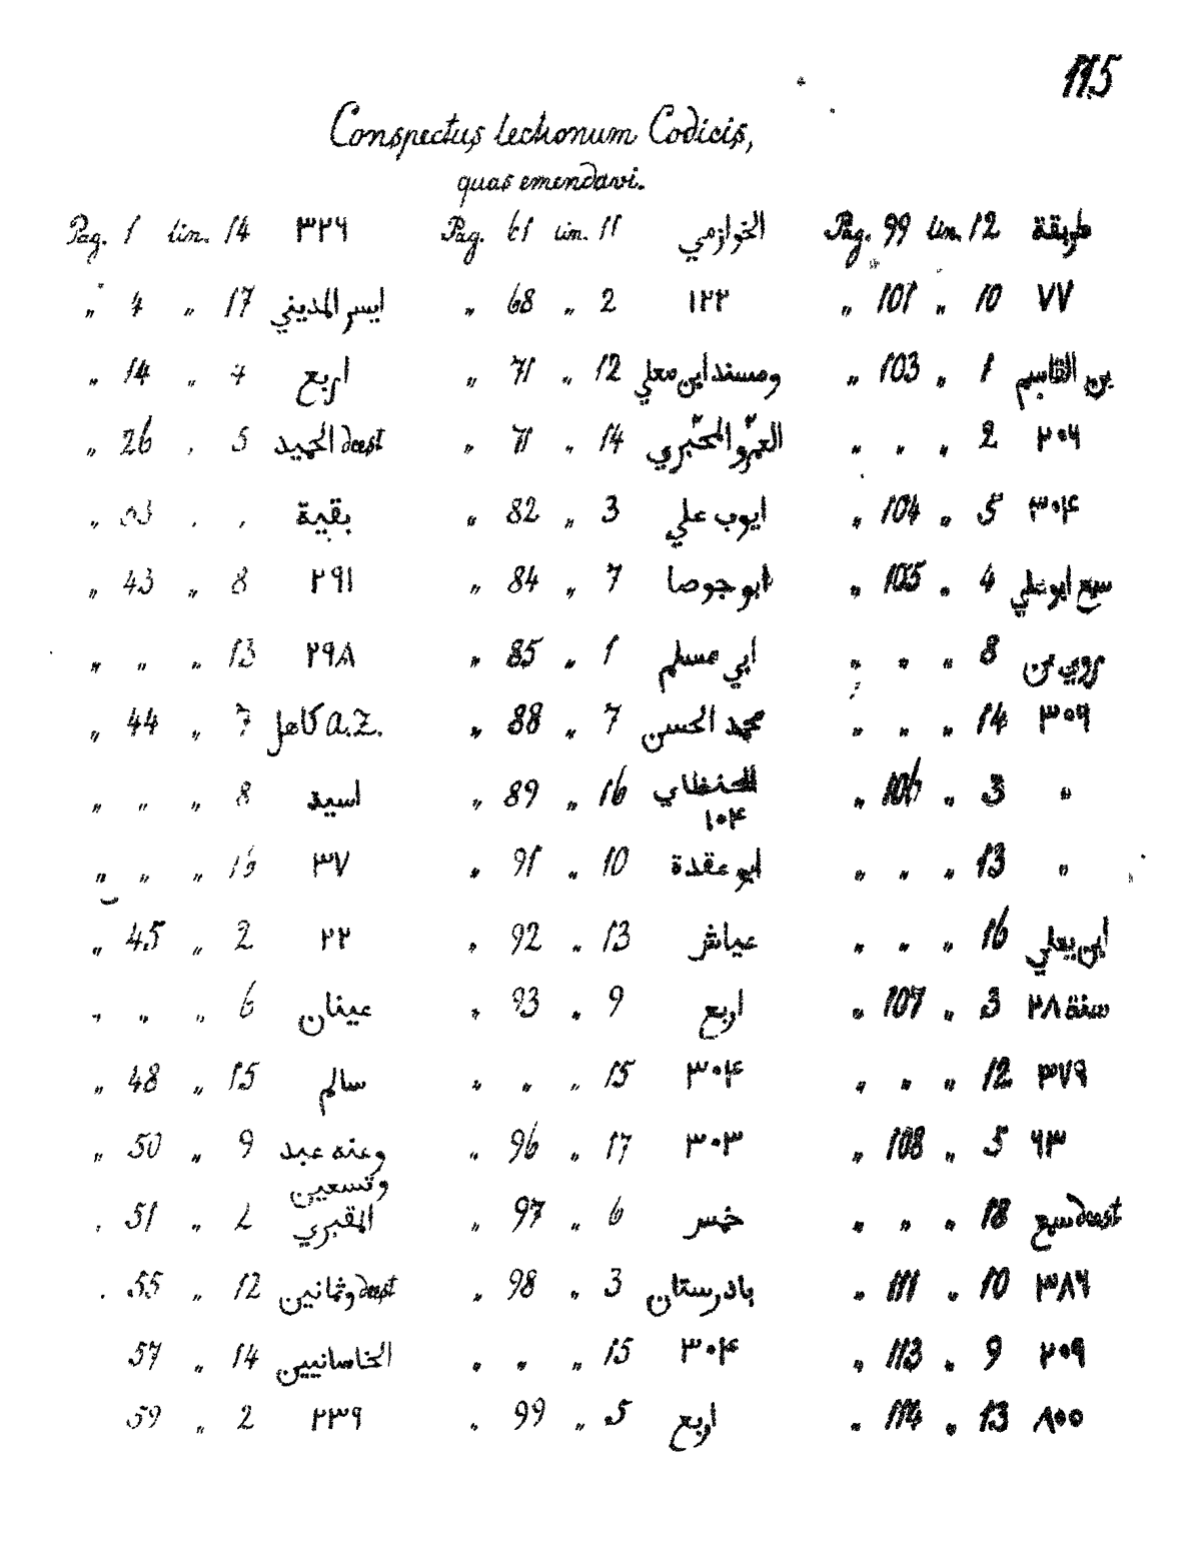 115
Conspectus lectionum Codicis,
quas emendavi.
Pag. 1 lin. 14 ٣٢٦ Pag. 61 lin. 11 الخوازمي Pag. 99 lin. 12 طريقة
„ 4 „ 17 ايسر المديني „ 68 „ 2 ١٢٢ „ 101 „ 10 ٧٧
„ 14 „ 4 اربع „ 71 „ 12 ومسند ابن معلي „ 103 „ 1 بن القاسم
„ 26 „ 5 الحميد deest „ 71 „ 14 „ „ „ 2 ٢٠٦
„ „ „ بقية „ 82 „ 3 ايوب علي „ 104 „ 5 ٣٠۴
„ 43 „ 8 ٢٩١ „ 84 „ 7 ابو جوصا „ 105 „ 4 سبع ابو علي
„ „ „ 13 ٢٩٨ „ 85 „ 1 ابي مسلم „ „ „ 8
„ 44 „ 7 كامل a.Z. „ 88 „ 7 محمد الحسن „ „ „ 14 ٣٠٦
„ „ „ 8 اسيد „ 89 „ 16 ١٠۴ „ 106 „ 3 „
„ „ „ 16 ٣٧ „ 91 „ 10 ابو عقدة „ „ „ 13 „
„ 45 „ 2 ٢٢ „ 92 „ 13 عياش „ „ „ 16 ابن يعلي
„ „ „ 6 عينان „ 93 „ 9 اربع „ 107 „ 3 سنة ٢٨
„ 48 „ 15 سالم „ „ „ 15 ٣٠۴ „ „ „ 12 ٣٧٩
„ 50 „ 9 وعنه عبد „ 96 „ 17 ٣٠٣ „ 108 „ 5 ٦٣
„ 51 „ 2 وتسعين المقبري „ 97 „ 6 خمس „ „ „ 18 سبع deest
„ 55 „ 12 وثمانين deest „ 98 „ 3 بادرستان „ 111 „ 10 ٣٨٦
57 „ 14 الخاصانيين „ „ „ 15 ٣٠۴ „ 113 „ 9 ٢٠٩
59 „ 2 ٢٣٩ „ 99 „ 5 اربع „ 114 „ 13 ٨٠٥